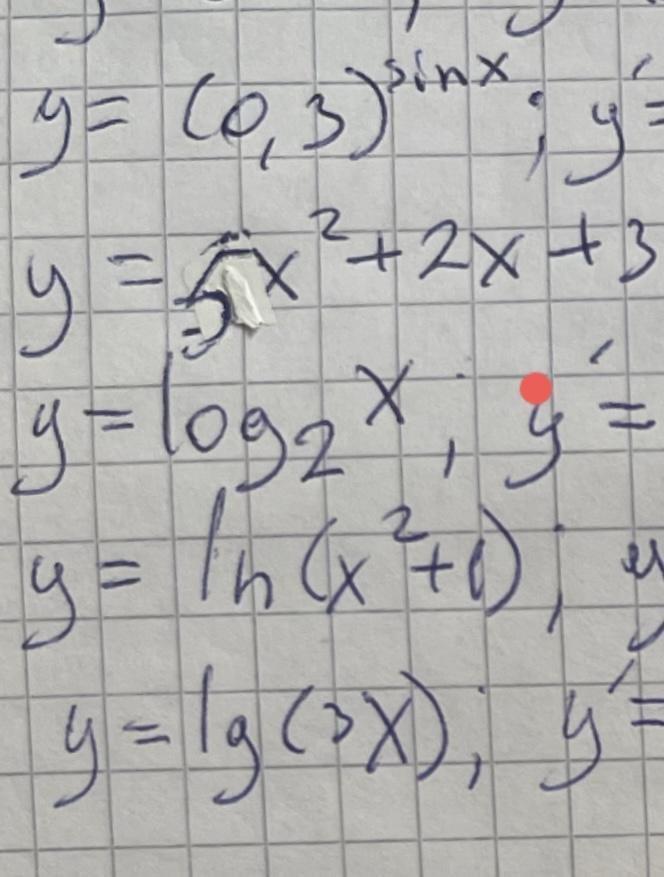 y = (0,3)^sinx ; y′=
y = x² + 2x + 3
y = log₂ x, y′=
y = ln(x²+1); y
y = lg(3x); y′=